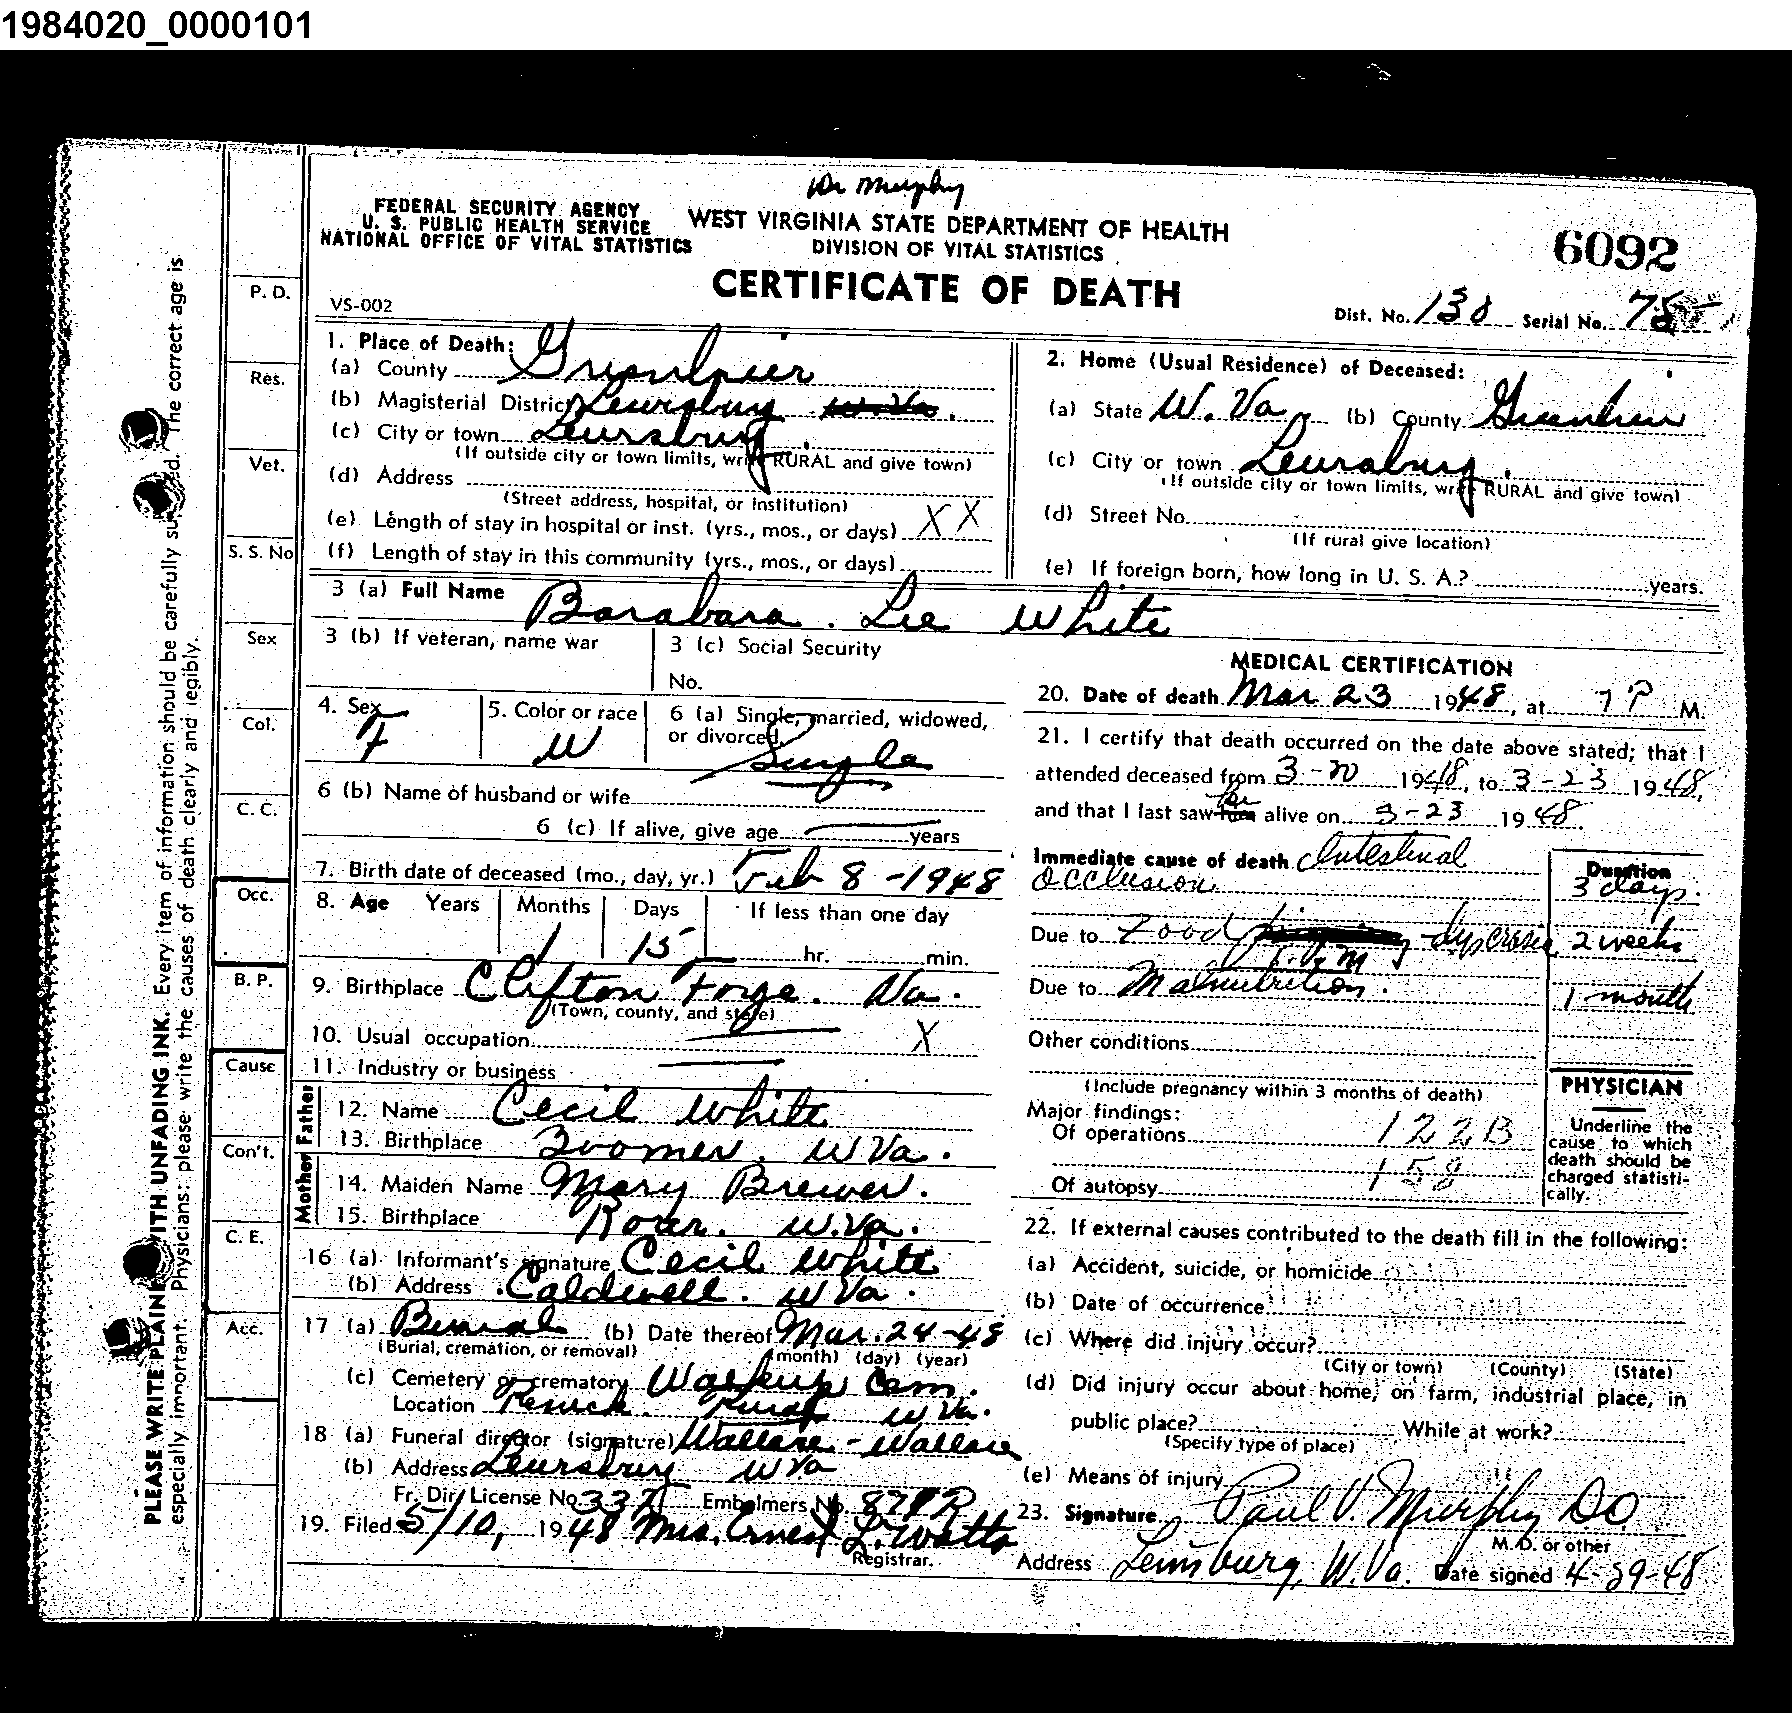 1984020_0000101
Dr Murphy
FEDERAL SECURITY AGENCY
U. S. PUBLIC HEALTH SERVICE
NATIONAL OFFICE OF VITAL STATISTICS
WEST VIRGINIA STATE DEPARTMENT OF HEALTH
DIVISION OF VITAL STATISTICS
6092
CERTIFICATE OF DEATH
VS-002
Dist. No. 130 Serial No. 75
1. Place of Death:
(a) County Greenbrier
(b) Magisterial District Lewisburg W.Va.
(c) City or town Lewisburg.
(If outside city or town limits, write RURAL and give town)
(d) Address
(Street address, hospital, or institution)
(e) Length of stay in hospital or inst. (yrs., mos., or days) XX
(f) Length of stay in this community (yrs., mos., or days)
2. Home (Usual Residence) of Deceased:
(a) State W. Va. (b) County Greenbrier
(c) City or town Lewisburg.
(If outside city or town limits, write RURAL and give town)
(d) Street No.
(If rural give location)
(e) If foreign born, how long in U. S. A.? years.
3 (a) Full Name Barabara. Lee White
3 (b) If veteran, name war
3 (c) Social Security
No.
4. Sex F
5. Color or race W
6 (a) Single, married, widowed,
or divorced Single
6 (b) Name of husband or wife
6 (c) If alive, give age years
7. Birth date of deceased (mo., day, yr.) Feb 8-1948
8. Age Years Months Days If less than one day
1 15 hr. min.
9. Birthplace Clifton Forge. Va.
(Town, county, and state)
10. Usual occupation X
11. Industry or business
Father
12. Name Cecil White
13. Birthplace Boomer. W Va.
Mother
14. Maiden Name Mary Brewer.
15. Birthplace W.Va.
16 (a) Informant's signature Cecil White
(b) Address Caldwell. W Va.
17 (a) Burial (b) Date thereof Mar. 24-48
(Burial, cremation, or removal) (month) (day) (year)
(c) Cemetery or crematory Walkup Cem.
Location Renick. Rural W Va.
18 (a) Funeral director (signature) Wallace-Wallace
(b) Address Lewisburg W Va
Fr. Dir. License No. 337 Embalmers No.
19. Filed 5/10, 1948 Mrs. Ernest L. Watts
Registrar.
MEDICAL CERTIFICATION
20. Date of death Mar 23 1948, at 7 P M.
21. I certify that death occurred on the date above stated; that I
attended deceased from 3-20 1948, to 3-23 1948,
and that I last saw him her alive on 3-23 1948.
Immediate cause of death Intestinal
occlusion
Duration
3 days.
Due to Food dyscrasia 2 weeks
P.V.M
Due to Malnutrition. 1 month
Other conditions
(Include pregnancy within 3 months of death)
Major findings:
Of operations 122B
158
Of autopsy
PHYSICIAN
Underline the
cause to which
death should be
charged statisti-
cally.
22. If external causes contributed to the death fill in the following:
(a) Accident, suicide, or homicide
(b) Date of occurrence
(c) Where did injury occur?
(City or town) (County) (State)
(d) Did injury occur about home, on farm, industrial place, in
public place? While at work?
(Specify type of place)
(e) Means of injury
23. Signature Paul V. Murphy D.O.
M.D. or other
Address Lewisburg, W.Va. Date signed 4-29-48
P. D.
Res.
Vet.
S. S. No
Sex
Col.
C. C.
Occ.
B. P.
Cause
Con't.
C. E.
Acc.
PLEASE WRITE PLAINLY WITH UNFADING INK. Every item of information should be carefully The correct age is
especially important. Physicians: please write the causes of death clearly and legibly.